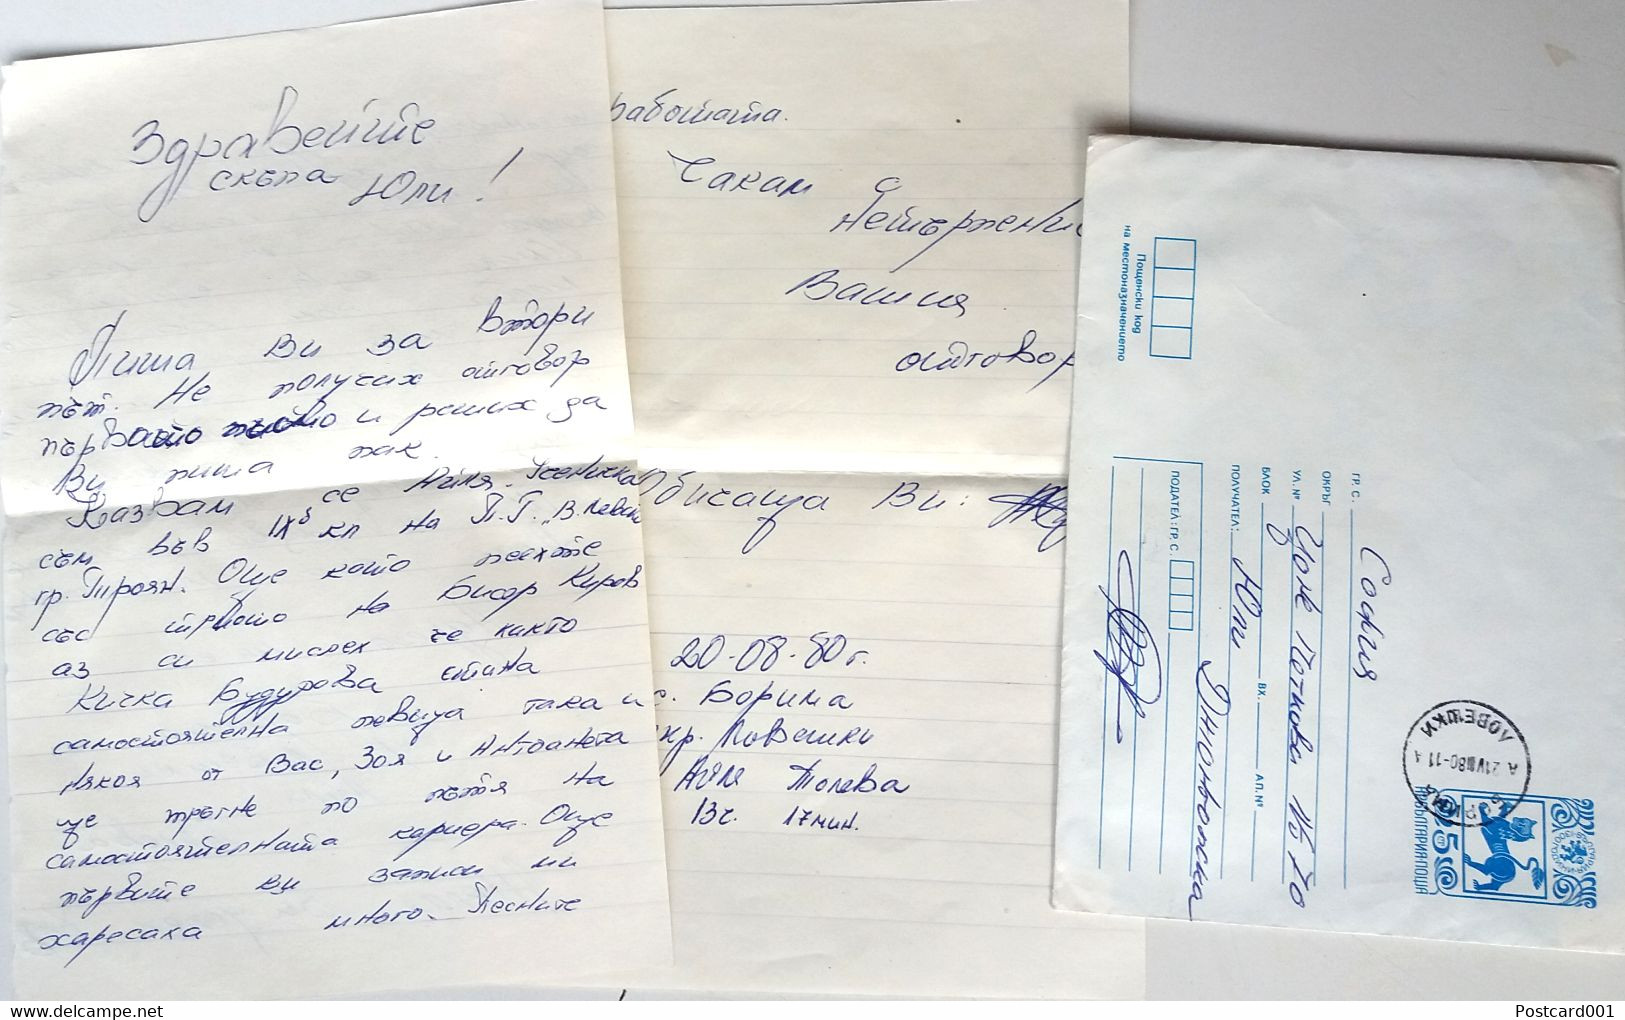 Здравейте
скъпа Юли!
Пиша Ви за втори
път. Не получих отговор
първото писмо и реших да
Ви пиша пак.
Казвам се Аглая. Ученичка
съм във IXб кл на П.Г. „В. Левски
гр. Троян. Още като пеехте
със триото на Бисер Киров
аз си мислех че както
Кичка Будурова стана
самостоятелна певица така и
някоя от Вас, Зоя и Антоанета
ще тръгне по пътя на
самостоятелната кариера. Още
първите ви записи ми
харесаха много. Песните
работата.
Чакам с
нетърпение
Вашия
отговор
Обичаща Ви:
20-08-80г.
с. Борима
окр. Ловешки
Толева
13ч. 17мин.
Пощенски код
на местоназначението
ГР. С. София
ОКРЪГ
УЛ. № Цоне Поткова
БЛОК ВХ. АП. №
ПОЛУЧАТЕЛ: Юли
Дтюновска
ПОДАТЕЛ: ГР. С.
21VIII80-11
ЛОВЕШКИ
НР БЪЛГАРИЯ ПОЩА
5
Postcard001
delcampe.net